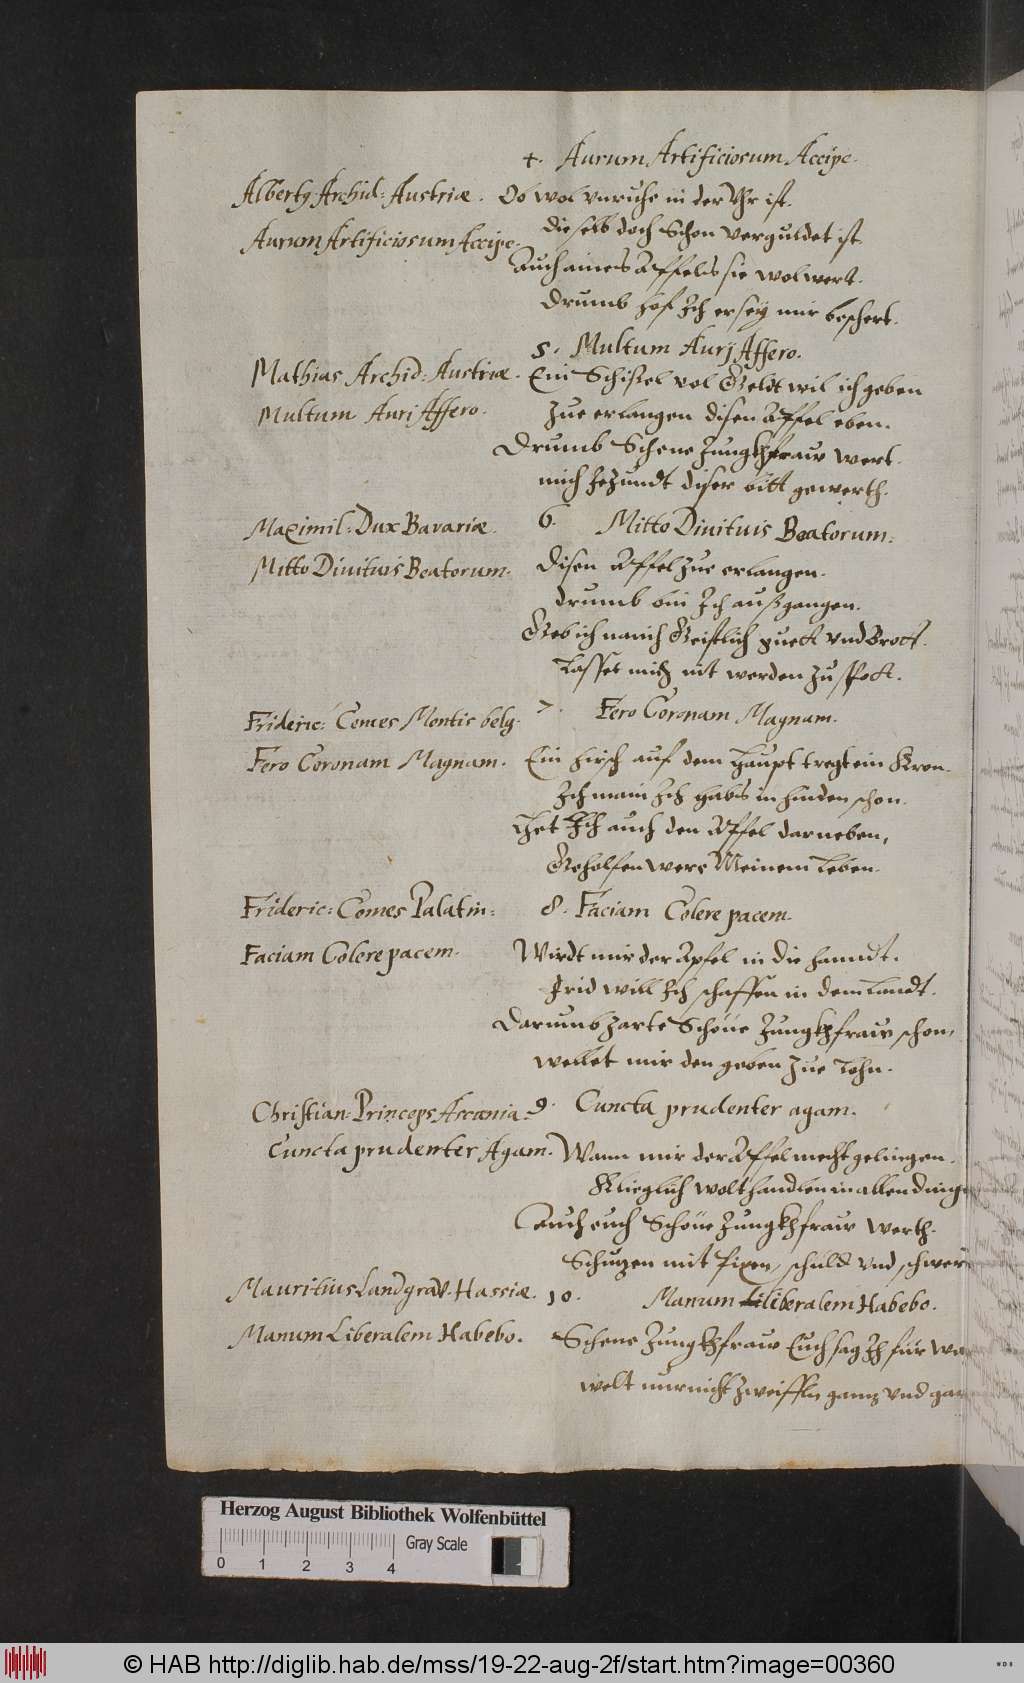 4. Aurum Artificiosum Accipe.
Alberty Archid: Austriæ. Ob wol vnruhe in der Vhr ist.
dieselb doch Schon verguldet ist
Aurum Artificiosum Accipe.
Auch aines Apffels sie wol wert.
drumb hof Ich er sey mir beschert.
5. Multum Aurj Affero.
Mathias Archid: Austriæ. Ein Schissel vol Geldt wil ich geben
Multum Auri Affero. Zue erlangen disen Apffel eben.
Drumb Schene Jungkhfraw wert.
mich Jezundt diser bitt gewerth.
Maximil: Dux Bavariæ. 6. Mitto Diuituis Beatorum.
Mitto Diuituis Beatorum. Disen Apffel zue erlangen.
drumb bin Ich außgangen.
Geb ich manich Geistlich guett vnd Brott.
Lasset mich nit werden zu spott.
Frideric: Comes Montis belg. 7. Fero Coronam Magnam.
Fero Coronam Magnam. Ein hirsch auf dem Haupt tregt ein Kron.
Ich main Ich habs in hinden schon.
Het Ich auch den Apffel darneben,
Geholfen were Meinem Leben.
Frideric: Comes Palatin: 8. Faciam Colere pacem.
Faciam Colere pacem. Wirdt mir der Apfel in die hanndt.
Frid will Ich schaffen in dem Landt.
Darumb zarte Schöne Jungkhfraw schon,
wellet mir den geben zue Lohn.
Christian Princeps Ascania. 9. Cuncta prudenter agam.
Cuncta prudenter Agam. Wann mir der Apffel mecht gelingen.
Klieglich wolt handlen in allen ding
Auch euch Schöne Jungkhfraw werth.
Schuzen mit fixen, schuld vnd schwer
Mauritius Landgrav. Hassiæ. 10. Manum Liliberalem Habebo.
Manum Liberalem Habebo. Schene Jungkhfraw Euch sag Ich für wa
welt nur nicht zweiffln ganz vnd gar
Herzog August Bibliothek Wolfenbüttel
Gray Scale
0 1 2 3 4
© HAB http://diglib.hab.de/mss/19-22-aug-2f/start.htm?image=00360